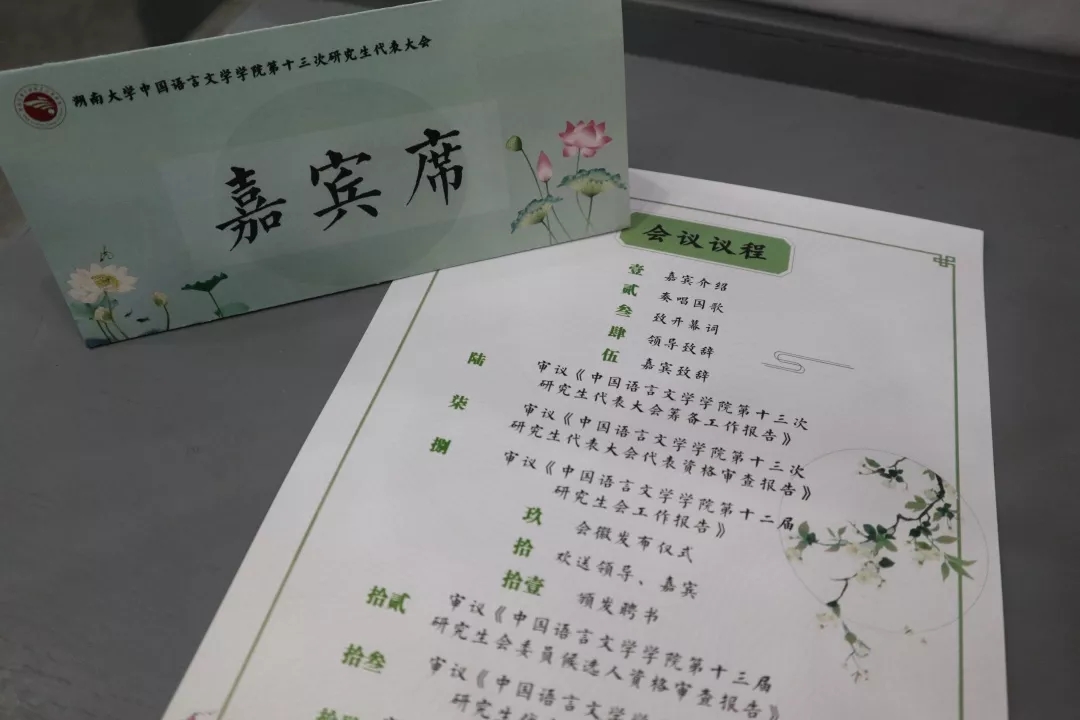 湖南大学中国语言文学学院第十三次研究生代表大会
嘉宾席
会议议程
壹 嘉宾介绍
贰 奏唱国歌
叁 致开幕词
肆 领导致辞
伍 嘉宾致辞
陆 审议《中国语言文学学院第十三次
研究生代表大会筹备工作报告》
柒 审议《中国语言文学学院第十三次
研究生代表大会代表资格审查报告》
捌 审议《中国语言文学学院第十二届
研究生会工作报告》
玖 会徽发布仪式
拾 欢送领导、嘉宾
拾壹 颁发聘书
拾贰 审议《中国语言文学学院第十三届
研究生会委员候选人资格审查报告》
拾叁 审议《中国语言文学学院第十三